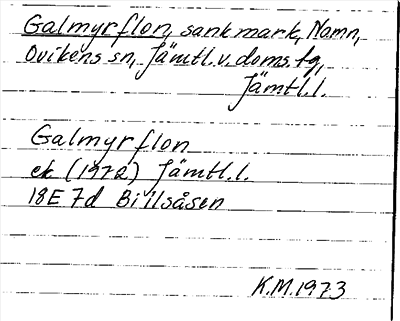 Galmyrflon, sank mark, Namn,
Ovikens sn, Jämtl. v. doms. tg,
Jämtl. l.
Galmyrflon
ek (1972) Jämtl. l.
18E 7d Billsåsen
K.M. 1973